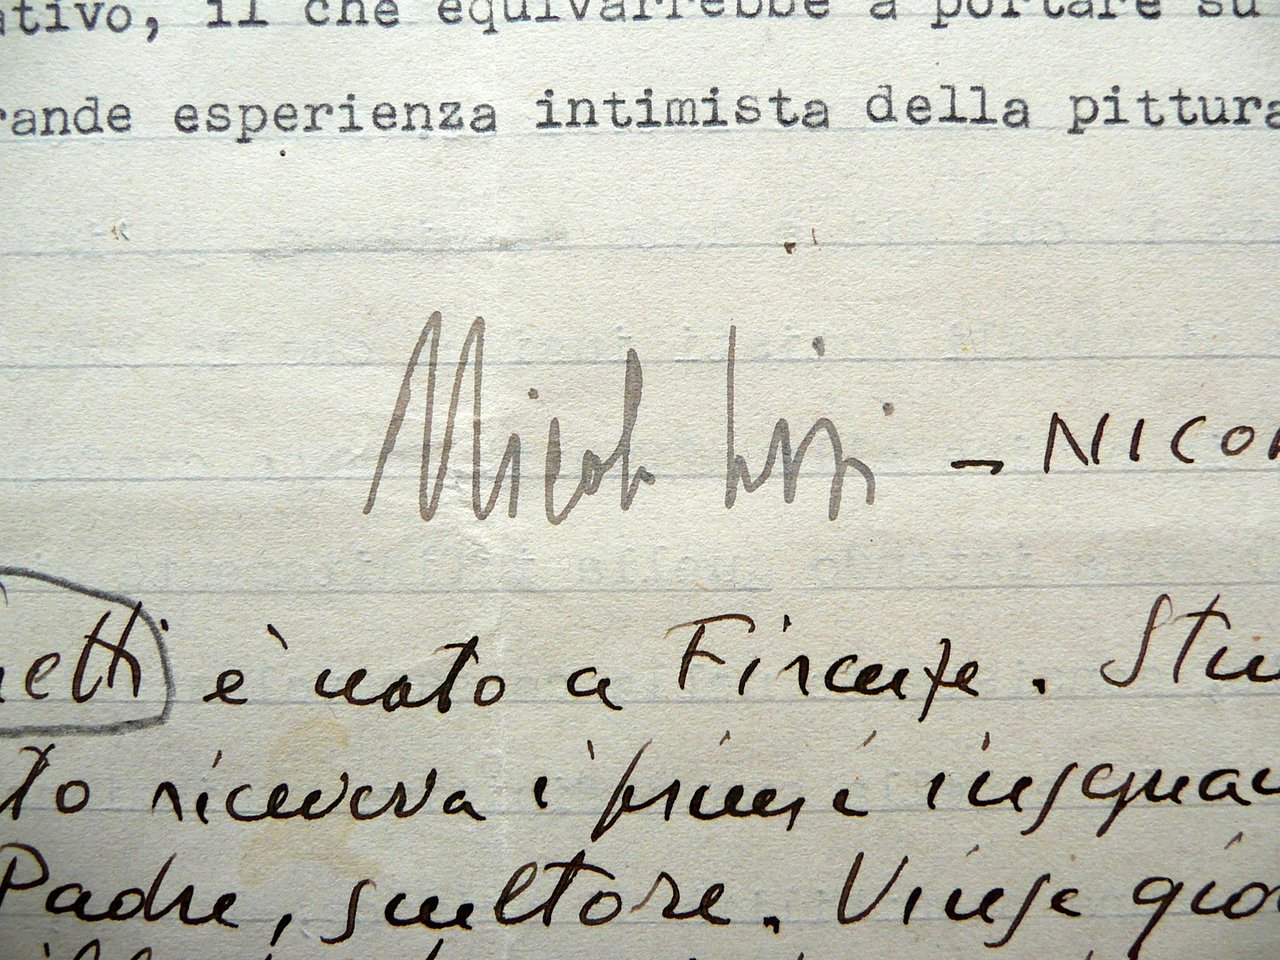 ativo, il che equivarrebbe a portare su
rande esperienza intimista della pittura
Nicola Lisi - NICOL
etti è nato a Firenze. Stu
to riceveva i primi insegnam
Padre, scultore. Vinse gio